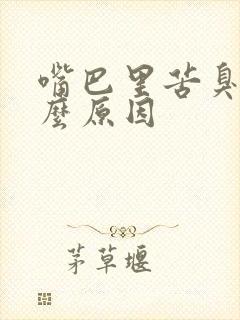 嘴巴里苦臭
麼原因
茅草堰